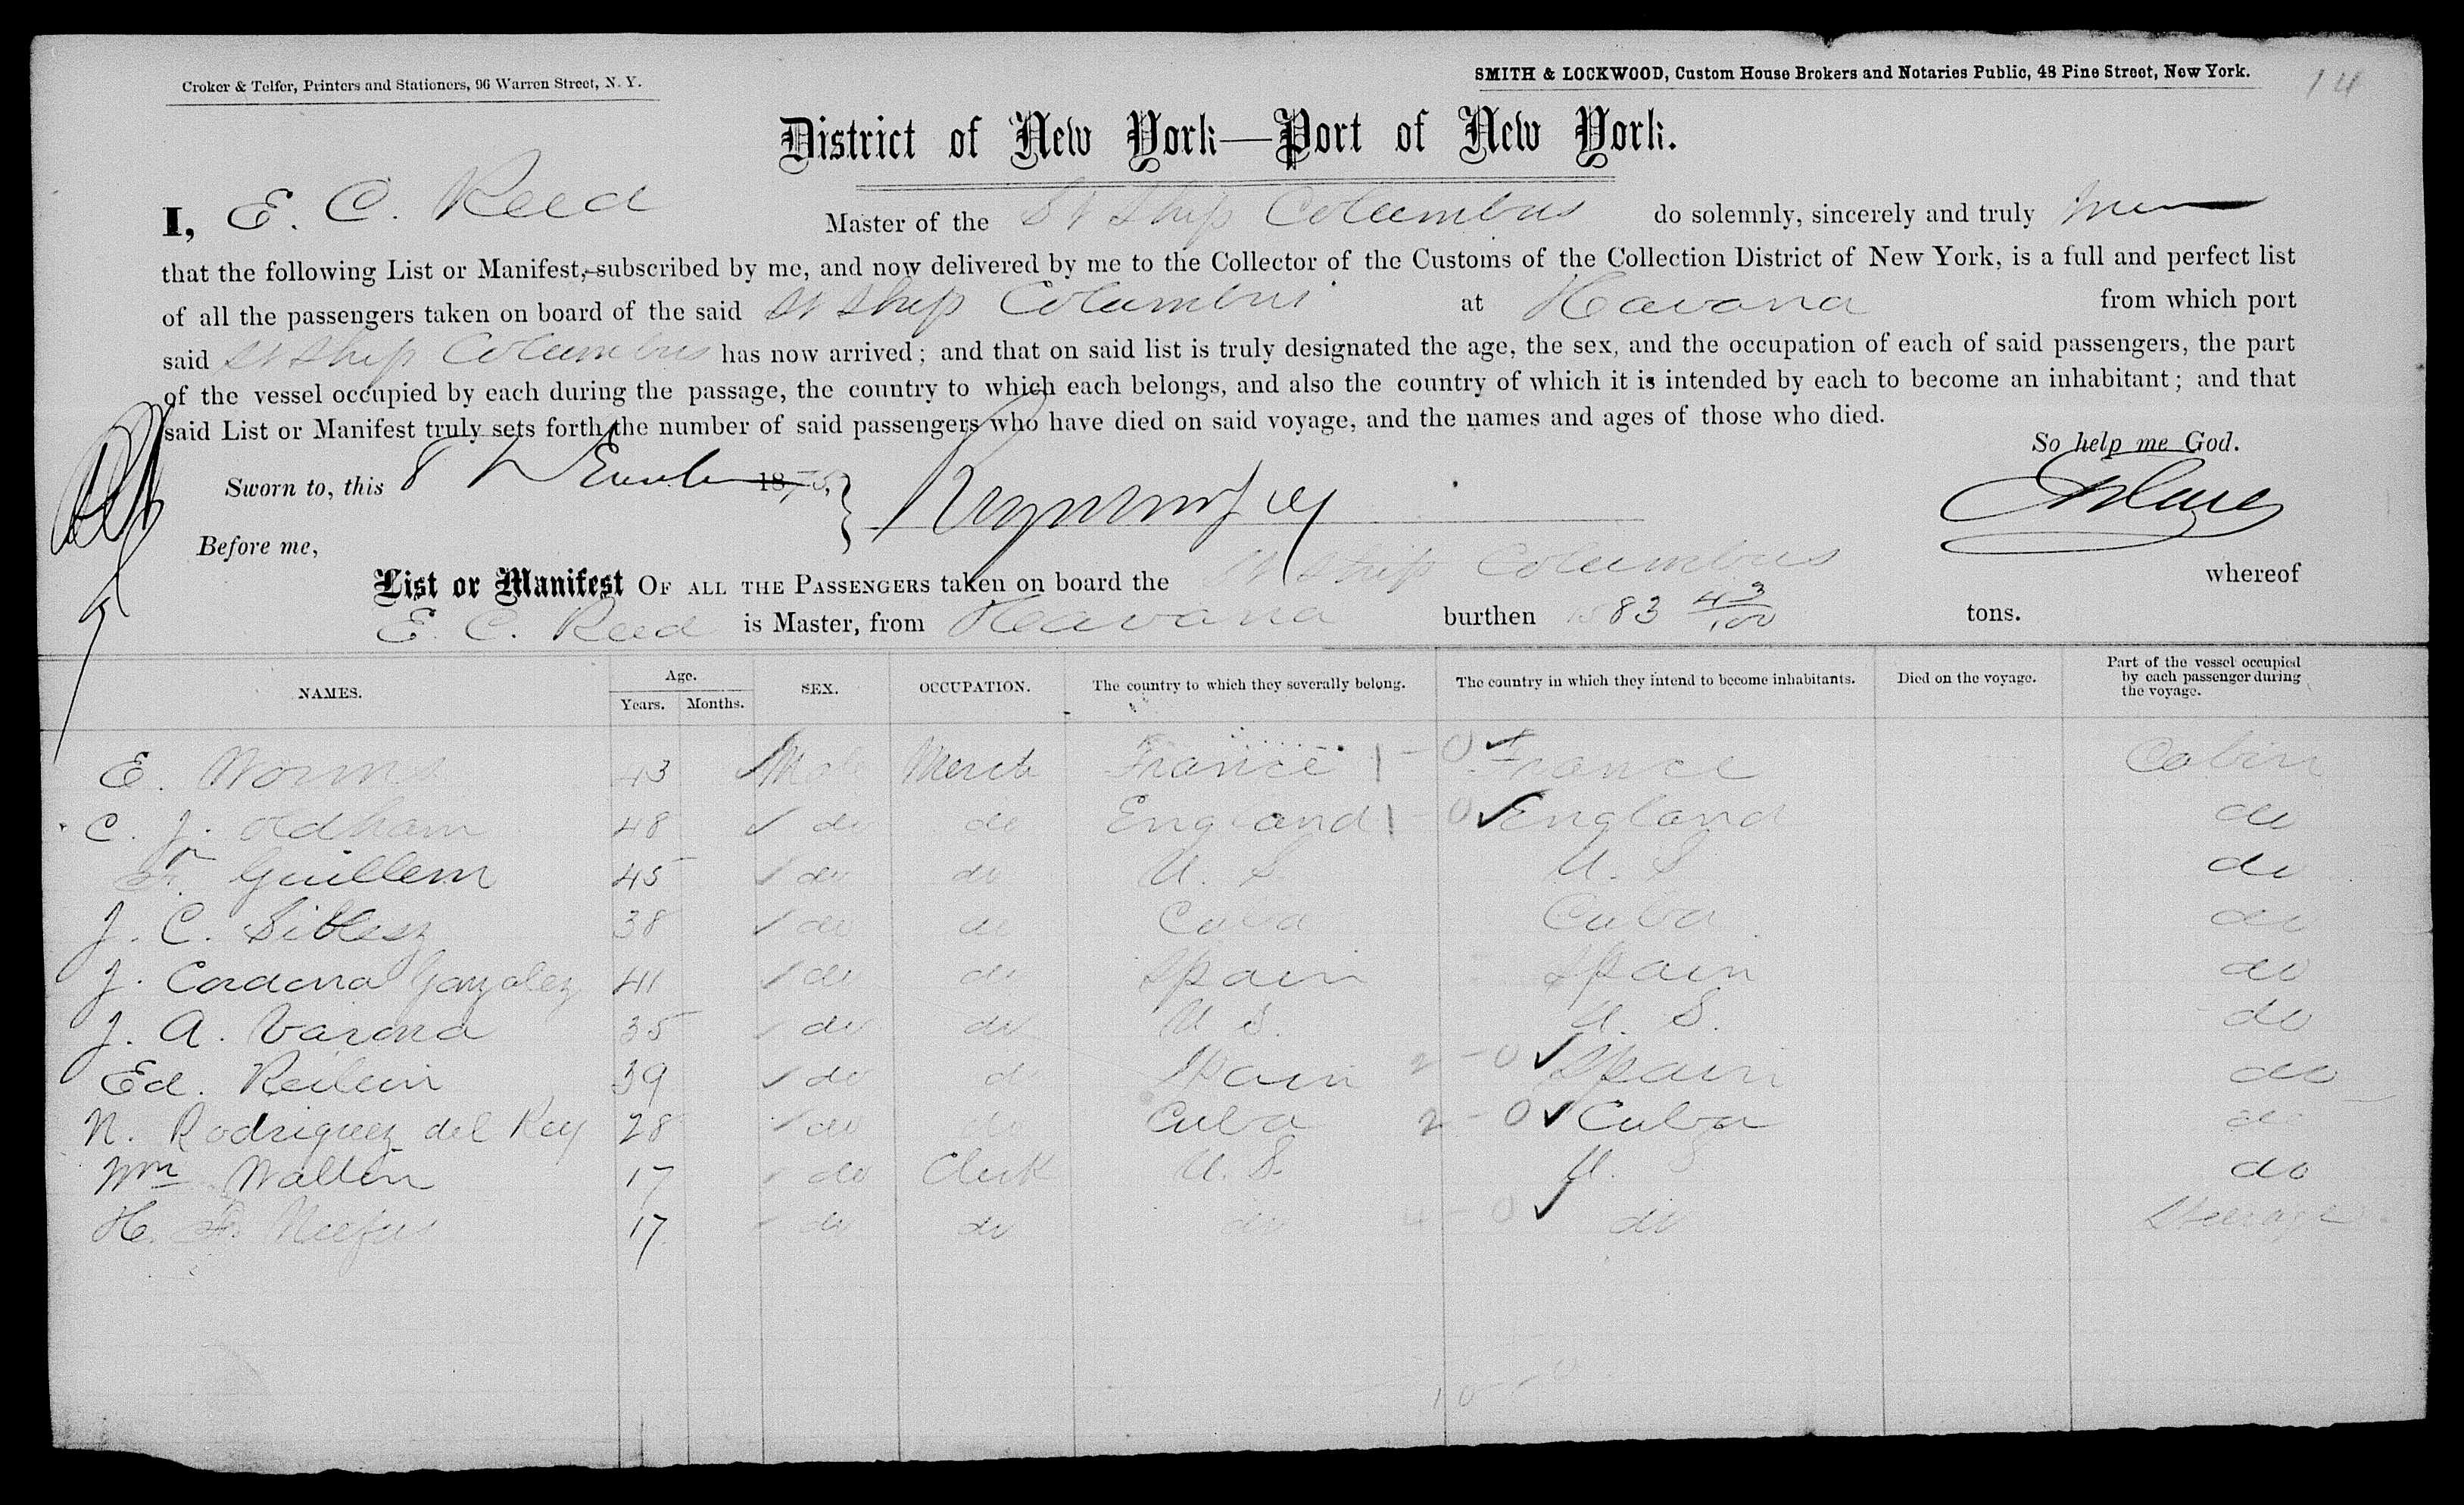 Croker & Telfer, Printers and Stationers, 96 Warren Street, N. Y.
SMITH & LOCKWOOD, Custom House Brokers and Notaries Public, 48 Pine Street, New York.
14
District of New York—Port of New York.
I, E. C. Reed Master of the St Ship Columbus do solemnly, sincerely and truly
that the following List or Manifest, subscribed by me, and now delivered by me to the Collector of the Customs of the Collection District of New York, is a full and perfect list
of all the passengers taken on board of the said St Ship Columbus at Havana from which port
said St Ship Columbus has now arrived; and that on said list is truly designated the age, the sex, and the occupation of each of said passengers, the part
of the vessel occupied by each during the passage, the country to which each belongs, and also the country of which it is intended by each to become an inhabitant; and that
said List or Manifest truly sets forth the number of said passengers who have died on said voyage, and the names and ages of those who died.
So help me God.
Sworn to, this 8 1875
Before me,
List or Manifest OF ALL THE PASSENGERS taken on board the St Ship Columbus whereof
E. C. Reed is Master, from Havana burthen 1583 43/100 tons.
NAMES. Age. Years. Months. SEX. OCCUPATION. The country to which they severally belong. The country in which they intend to become inhabitants. Died on the voyage. Part of the vessel occupied by each passenger during the voyage.
E. Worms 43 Male Merch France 1 - 0 France Cabin
C. J. Oldham 48 do do England 1 - 0 England do
F. Guillem 45 do do U. S U. S do
J. C. 38 do do Cuba Cuba do
J. Cardona Gonzalez 41 do do Spain Spain do
J. A. Varona 35 do do U S. U. S. do
Ed. 39 do do Spain 2 - 0 Spain do
N. Rodriguez del Rey 28 do do Cuba 2 - 0 Cuba do
Wm Wallin 17 do Clerk U. S. U. S do
H. F. Meefus 17 do do do 4 - 0 do Steerage
10 - 0